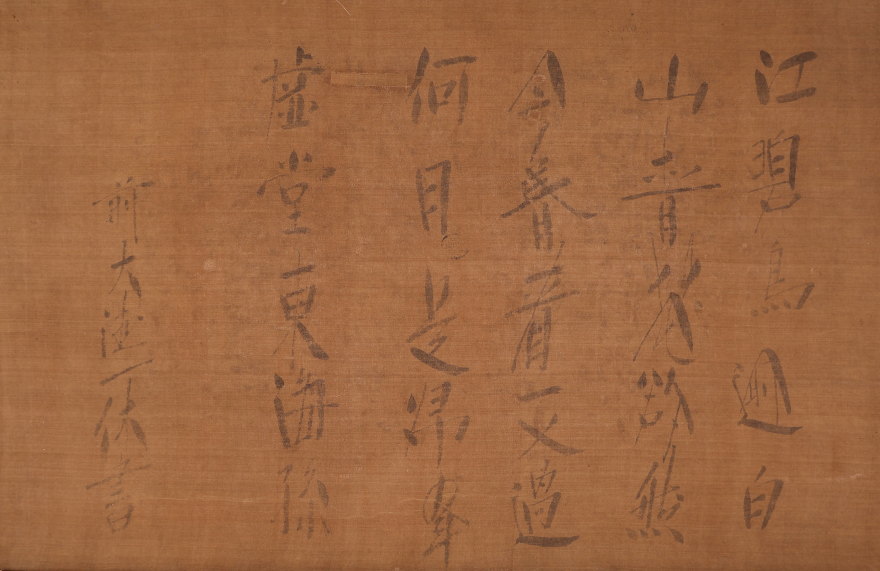 江碧鳥逾白
山青花欲然
今春看又過
何日是帰年
虚堂東海孫
前大徳一休書